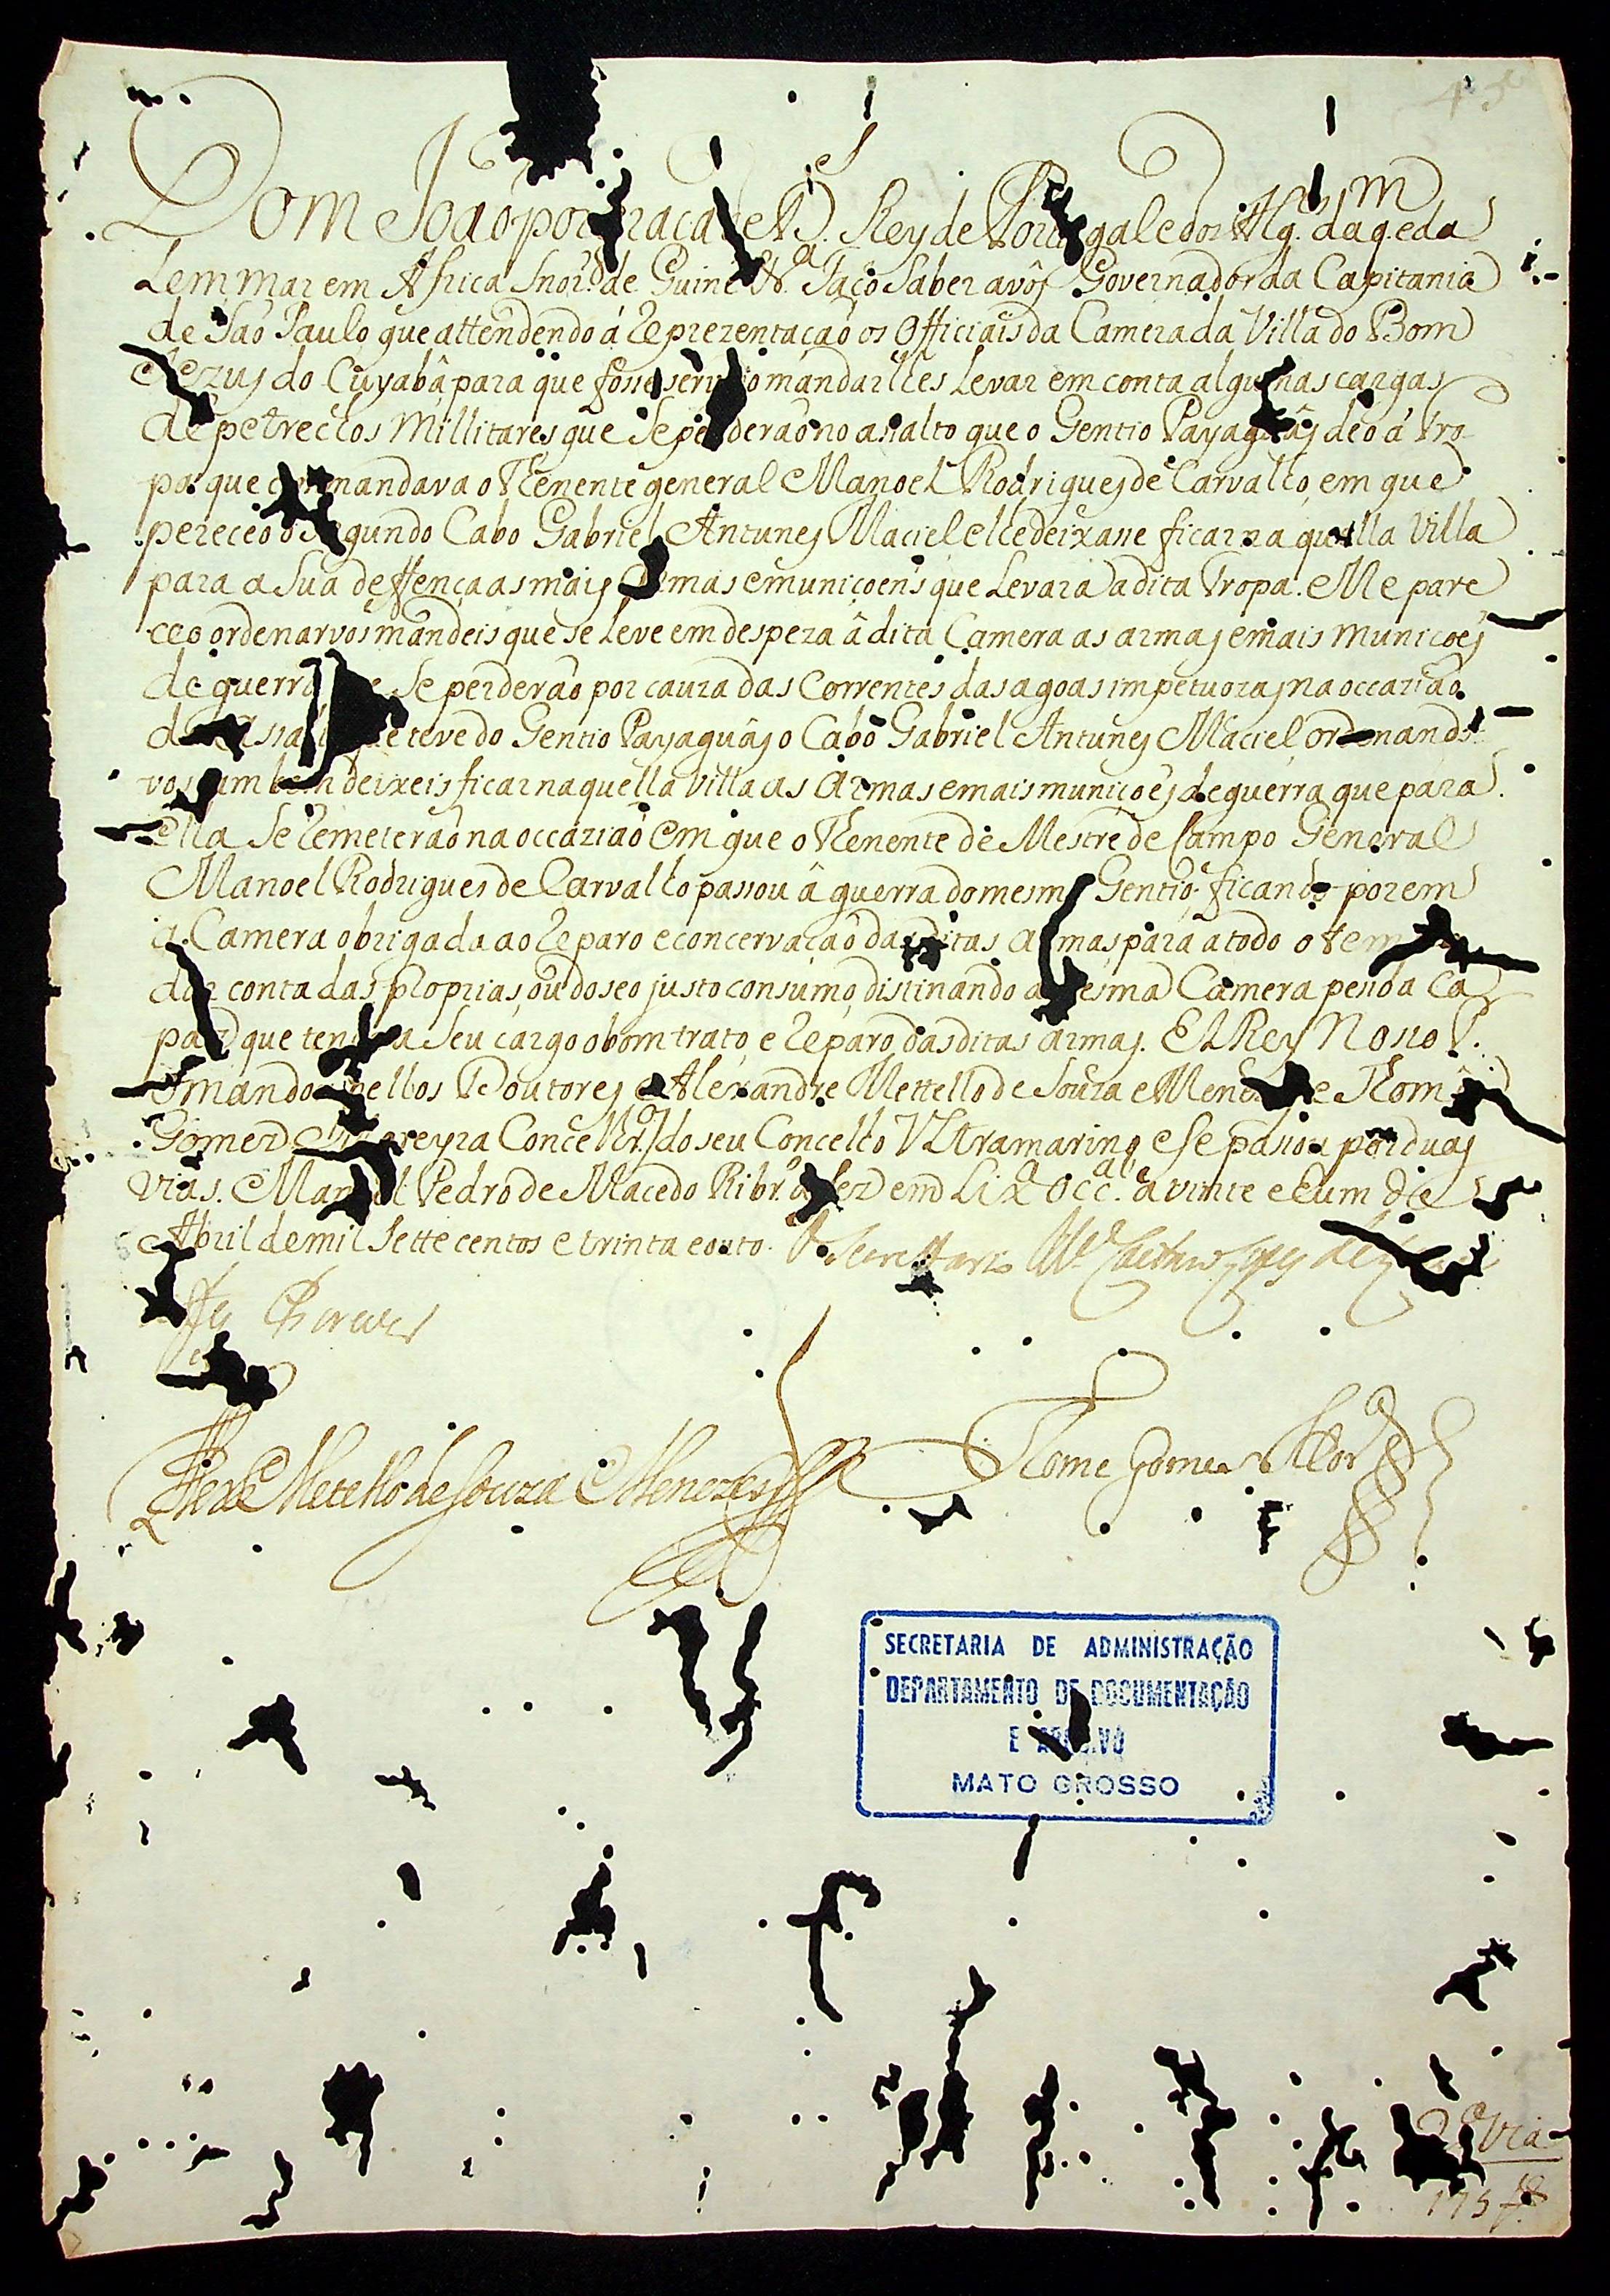 Dom João por graça de D. Rey de Portugal e dos Alg. daq. e da
Lem mar em Africa Snor. de Guiné &.ª Faço Saber avós Governador da Capitania
de São Paulo que attendendo á Reprezentação os Officiais da Camera da Villa do Bom
Jezus do Cuyabâ para que fosse servido mandarlhes Levar em conta algumas cargas
de petrechos Millitares que Se perderão no asalto que o Gentio Payaguâs deo á tro
pa que commandava o Thenente general Manoel Rodrigues de Carvalho, em que
pereceo o Segundo Cabo Gabriel Antunes Maciel e lhe deixasse ficar na quella Villa
para a Sua deffença as mais armas e muniçoens que Levara a dita Tropa. Me pare
ceo ordenarvos mandeis que se Leve em despeza â dita Camera as armas e mais municoes
de guerra que Se perderão por cauza das Correntes das agoas impetuozas na occazião
do asalto que teve do Gentio Payaguâs o Cabo Gabriel Antunes Maciel, ordenando
vos tambem deixeis ficar na quella Villa as Armas e mais muniçoes de guerra que para
ella Se Remeterão na occazião em que o Thenente de Mestre de Campo General
Manoel Rodrigues de Carvalho passou â guerra do mesmo Gentio, ficando porem
a Camera obrigada ao Reparo e concervação das ditas Armas para a todo o tempo
dar conta das proprias ou do seo justo consumo, distinando a mesma Camera pessoa Ca
paz que tenha a Seu cargo o bom trato, e Reparo das ditas armas. El Rey Nosso S.
o mandou pellos Doutores Alexandre Mettello de Souza e Menezes e Thomê
Gomes Moreyra Conçelhr.os do seu Concelho Ultramarino, e Se passou por duas
vias. Manoel Pedro de Macedo Ribr.o a fez em Lix.ª occ.al a vinte e hum de
Abril de mil Sette centos e trinta e outo. O Secretario M.el Caetano Lopes de
a fez Escrever
Alex.e Metello de Souza e Menezes
Thome Gomes Mor.ª
SECRETARIA DE ADMINISTRAÇÃO
DEPARTAMENTO DE DOCUMENTAÇÃO
E ARQUIVO
MATO GROSSO
2.ª Via